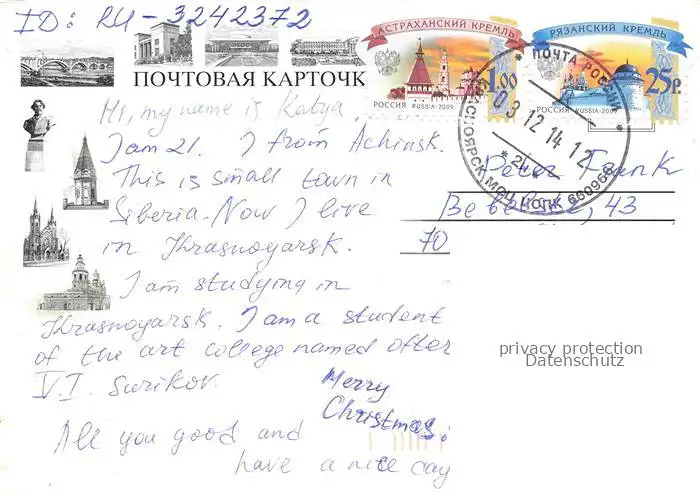 ID: RU-3242372
АСТРАХАНСКИЙ КРЕМЛЬ
1.00
РОССИЯ RUSSIA·2009
РЯЗАНСКИЙ КРЕМЛЬ
25р.
РОССИЯ RUSSIA·2009
ПОЧТА РОССИИ
03 12 14 12
ПОЧТОВАЯ КАРТОЧК
Hi, my name is Katya.
I am 21. I from Achinsk.
This is small town in
Siberia. Now I live
in Krasnoyarsk.
I am studying in
Krasnoyarsk. I am a student
of the art college named after
V.I. Surikov.
Merry
Christmas!
All you good and
have a nice day
Peter Frank
43
70
privacy protection
Datenschutz